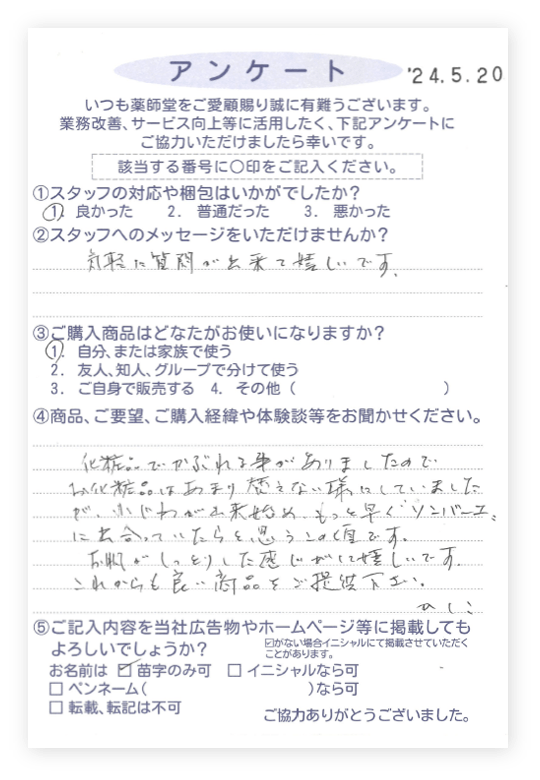 アンケート
'24.5.20
いつも薬師堂をご愛顧賜り誠に有難うございます。
業務改善、サービス向上等に活用したく、下記アンケートに
ご協力いただけましたら幸いです。
該当する番号に○印をご記入ください。
①スタッフの対応や梱包はいかがでしたか?
1. 良かった 2. 普通だった 3. 悪かった
②スタッフへのメッセージをいただけませんか?
気軽に質問が出来て嬉しいです。
③ご購入商品はどなたがお使いになりますか?
1. 自分、または家族で使う
2. 友人、知人、グループで分けて使う
3. ご自身で販売する 4. その他( )
④商品、ご要望、ご購入経緯や体験談等をお聞かせください。
化粧品でかぶれる事がありましたので
お化粧品はあまり使えない様にしていました
が、小じわが出来始め、もっと早く"ソンバーユ"
に出会っていたらと思うこの頃です。
お肌がしっとりした感じがして嬉しいです。
これからも良い商品をご提供下さい。
⑤ご記入内容を当社広告物やホームページ等に掲載しても
よろしいでしょうか?
☑がない場合イニシャルにて掲載させていただく
ことがあります。
お名前は ☑ 苗字のみ可 □ イニシャルなら可
□ ペンネーム( )なら可
□ 転載、転記は不可
ご協力ありがとうございました。